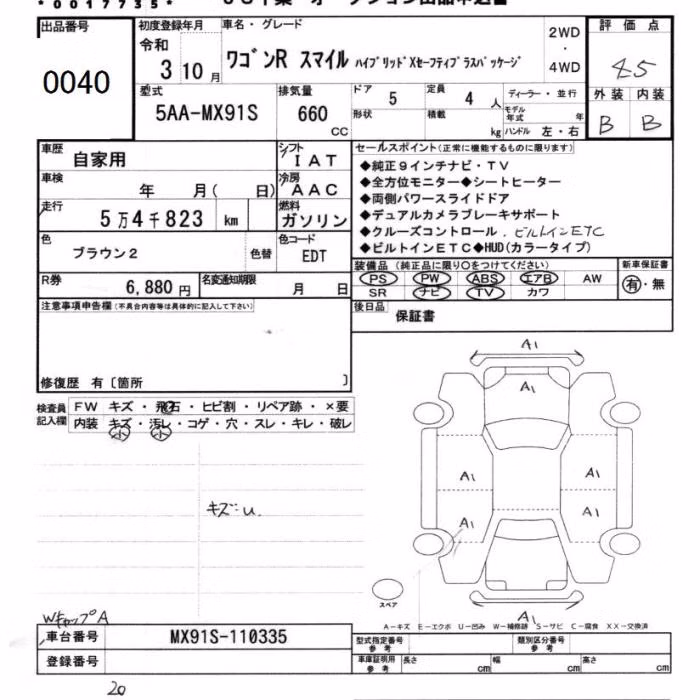 *0017735*
出品番号
0040
初度登録年月
令和
3 10 月
車名・グレード
ワゴンR スマイル ハイブリッドXセーフティプラスパッケージ
2WD
・
4WD
評価点
4.5
外装 内装
B B
型式
5AA-MX91S
排気量
660
CC
ドア
5
形状
定員
4 人
積載
kg
ディーラー・並行
モデル年式 年
ハンドル 左・右
車歴
自家用
シフト
IAT
車検
年 月( 日)
冷房
AAC
走行
5万4千823 km
燃料
ガソリン
色
ブラウン2
色替
色コード
EDT
R券
6,880 円
名変通知期限
月 日
セールスポイント(正常に機能するものに限ります)
◆純正9インチナビ・TV
◆全方位モニター◆シートヒーター
◆両側パワースライドドア
◆デュアルカメラブレーキサポート
◆クルーズコントロール . ビルトインETC
◆ビルトインETC◆HUD(カラータイプ)
装備品 (純正品に限り○をつけてください)
PS PW ABS エアB AW
SR ナビ TV カワ
新車保証書
有・無
後日品
保証書
注意事項申告欄(不具合内容等は具体的に記入して下さい)
修復歴 有〔箇所 〕
検査員
記入欄
FW キズ・飛石・ヒビ割・リペア跡・×要
内装 キズ・汚レ・コゲ・穴・スレ・キレ・破レ
小 小
キズ:U.
A1
A1
A1 A1
A1 A1
A1
スペア
A-キズ E-エクボ U-凹み W-補修跡 S-サビ C-腐食 XX-交換済
WキャップA
車台番号
MX91S-110335
登録番号
型式指定番号
参考
類別区分番号
参考
車庫証明用
参考
長さ cm
幅 cm
高さ cm
20